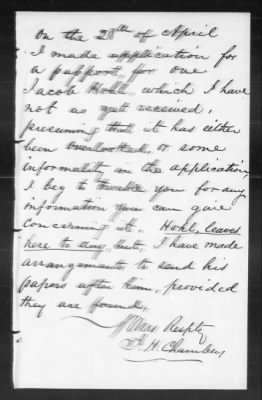 On the 28th of April
I made application for
a passport, for one
Jacob Hohl, which I have
not as yet received.
presuming that it has either
been overlooked, or some
informality in the application
I beg to trouble you for any
information you can give
concerning it. Hohl, leaves
here to day, but I have made
arrangements to send his
papers after him, provided
they are found.
Yours Respty
H. Chambers